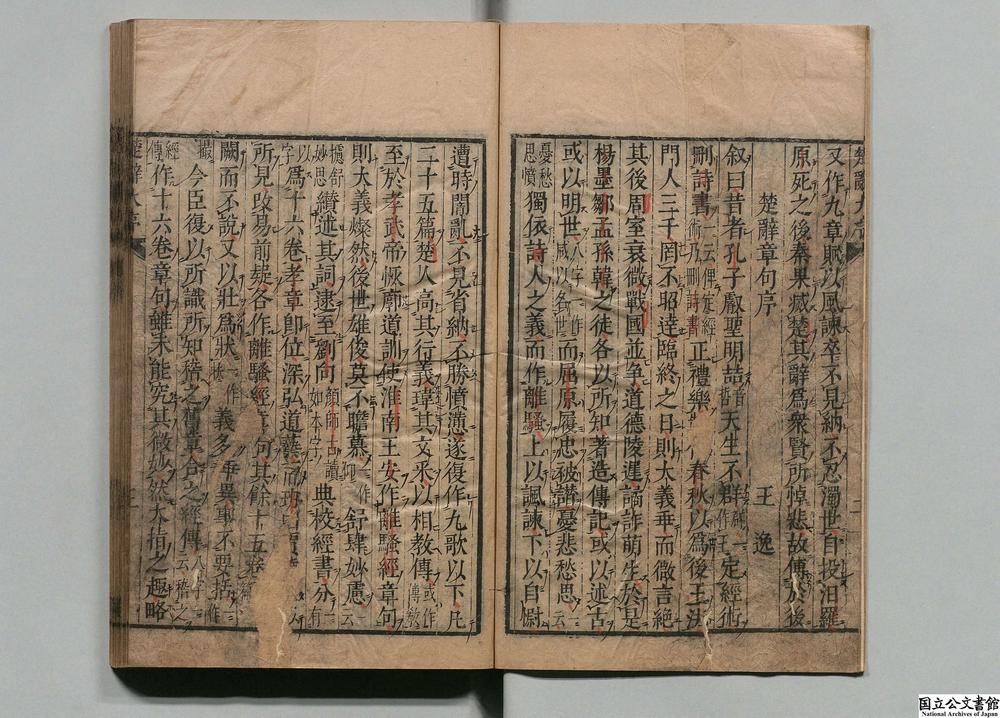 又作九章賦以風諫卒不見納不忍濁世自投汨羅
原死之後秦果滅楚其辭為衆賢所悼悲故傳於後
楚辭章句序
王逸
叙曰昔者孔子叡聖明喆音哲天生不群一定經術
刪詩書一云俾定經術乃刪詩書正禮樂春秋以為後王法
門人三千罔不昭達臨終之日則大義乖而微言絶
其後周室衰微戰國並爭道德陵遲譎詐萌生於是
楊墨鄒孟孫韓之徒各以所知著造傳記或以述古
或以明世八字一作咸以名世而屈原履忠被譖憂悲愁思云
憂愁思憤獨依詩人之義而作離騷上以諷諫下以自慰
遭時闇亂不見省納不勝憤懣遂復作九歌以下凡
二十五篇楚人高其行義瑋其文采以相教傳或作傳教
至於孝武帝恢廓道訓使淮南王安作離騷經章句
則大義燦然後世雄俊莫不瞻慕一作仰舒肆妙慮云
攄舒妙思纘述其詞逮至劉向顏師古讀如本字典校經書分有
以字為十六卷孝章即位深弘道藝而班
所見改易前疑各作離騷經章句其餘十五卷
闕而不說又以壯為狀一作扶義多乖異事不要括一作
撮今臣復以所識所知稽之舊章合之經傳八字一云稽之
經傳作十六卷章句雖未能究其微妙然大指之趣略
国立公文書館
National Archives of Japan